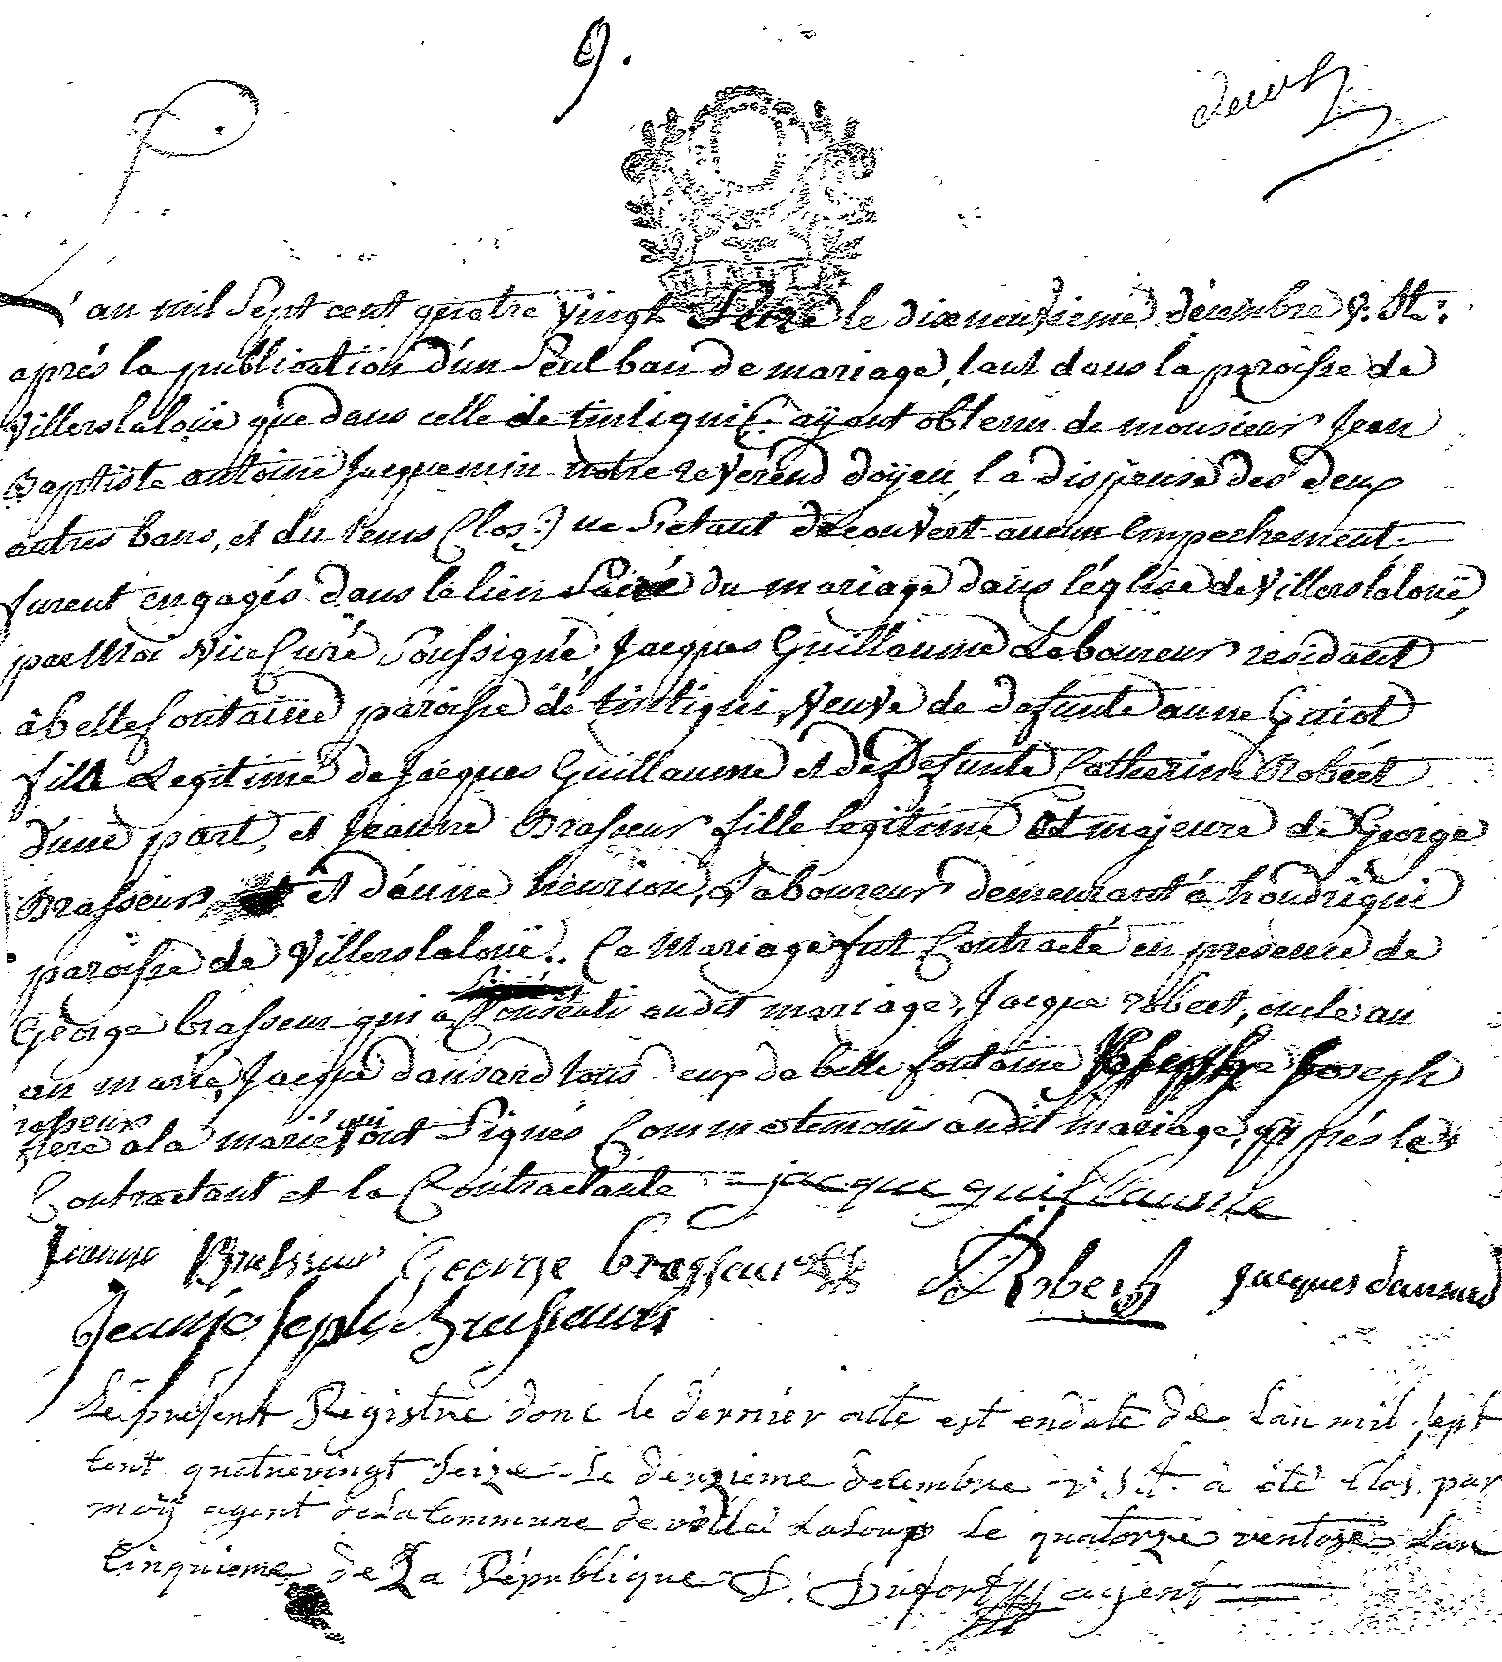 9.
L'an mil Sept cent quatre vingt Seize le dixneuvieme décembre v. st:
aprés la publication d'un Seul ban de mariage, tant dans la paroisse de
Villerslaloüe que dans celle de tintigni (: aÿant obtenu de monsieur Jean
Baptiste antoine Jacquemin notre reverend doÿen, la dispense des deux
autres bans, et du tems Clos :) ne s'etant decouvert aucun Empechement
furent engagés dans le lien Sacré du mariage dans l'église de Villerslaloüe,
par Moi Vice Curé Soussigné, Jacques Guillaume Laboureur residant
à bellefontaine paroisse de tintigni, veuve de defunte anne Guiot
fils Legitime de Jacques Guillaume et de Defunte Catherine Robert
d'une part, et Jeanne Brasseur fille legitime Et majeure de George
Brasseur et d'anne henrion, Laboureur demeurant à houdrigni
paroisse de Villerslaloüe. Ce Mariage fut Contracté en presence de
George brasseur qui a Consenti audit mariage, Jacque robert, oncle au
au marié, Jacque dausard tous eux de belle fontaine Joseph
rasseur
frere a la marié qui ont Signés Comme temoins audit mariage, après les
Contractant et la Contractante jacque guillaume
Jeanne Brasseur George brasseur Robert jacques dausard
Jean joseph Brasseur
Le présent Régistre donc le dernier acte est endate de L'an mil sept
cent quatrevingt Seize le deuzieme decembre v. st. à été Clos par
moÿ agent de La Commune de ville La Loup le quatorze ventose L'an
Cinquieme de La République D. Dufort agent